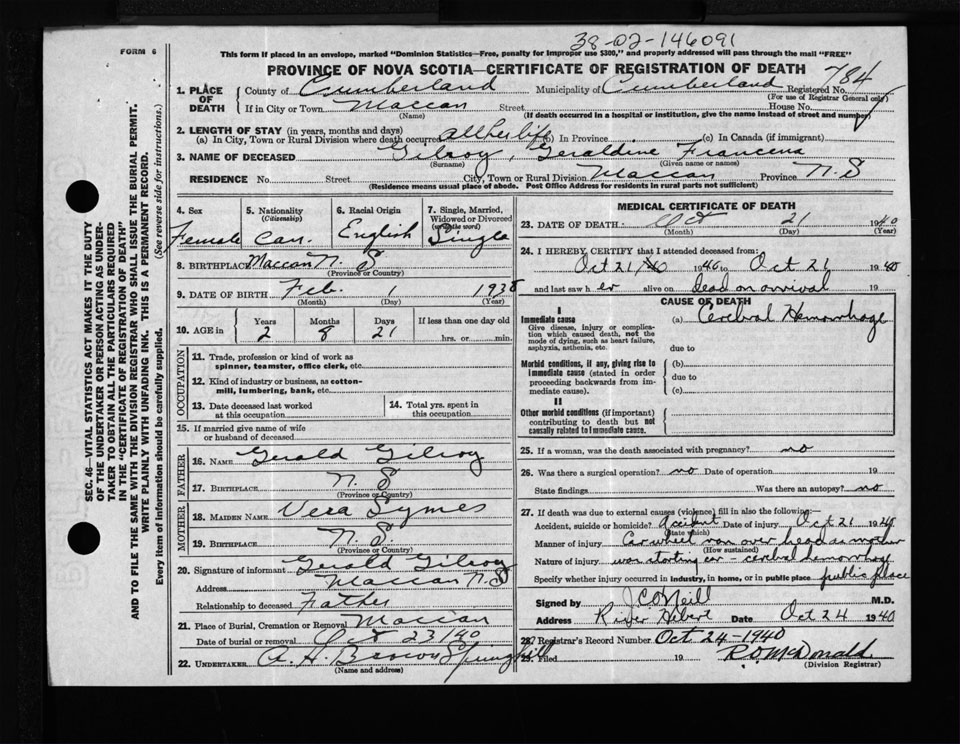 38-02-146091
FORM 6
This form if placed in an envelope, marked "Dominion Statistics—Free, penalty for improper use $300," and properly addressed will pass through the mail "FREE"
PROVINCE OF NOVA SCOTIA—CERTIFICATE OF REGISTRATION OF DEATH
784
1. PLACE OF DEATH
County of Cumberland Municipality of Cumberland Registered No.
(For use of Registrar General only)
If in City or Town Maccan Street House No.
(Name) (If death occurred in a hospital or institution, give the name instead of street and number)
2. LENGTH OF STAY (in years, months and days)
(a) In City, Town or Rural Division where death occurred all her life (b) In Province (c) In Canada (if immigrant)
3. NAME OF DECEASED Gilroy, Geraldine Francena
(Surname) (Given name or names)
RESIDENCE No. Street City, Town or Rural Division Maccan Province N. S
(Residence means usual place of abode. Post Office Address for residents in rural parts not sufficient)
4. Sex Female
5. Nationality (Citizenship) Can.
6. Racial Origin English
7. Single, Married, Widowed or Divorced (write the word) Single
8. BIRTHPLACE Maccan N. S
(Province or Country)
9. DATE OF BIRTH Feb. 1 1938
(Month) (Day) (Year)
10. AGE in Years Months Days If less than one day old
2 8 21 hrs. or min.
OCCUPATION
11. Trade, profession or kind of work as spinner, teamster, office clerk, etc.
12. Kind of industry or business, as cotton-mill, lumbering, bank, etc.
13. Date deceased last worked at this occupation
14. Total yrs. spent in this occupation
15. If married give name of wife or husband of deceased
FATHER
16. NAME Gerald Gilroy
17. BIRTHPLACE N. S
(Province or Country)
MOTHER
18. MAIDEN NAME Vera Symes
19. BIRTHPLACE N. S.
(Province or Country)
20. Signature of informant Gerald Gilroy
Address Maccan N. S
Relationship to deceased Father
21. Place of Burial, Cremation or Removal Maccan
Date of burial or removal Oct 23/40
22. UNDERTAKER A. H. Brown Springhill
(Name and address)
MEDICAL CERTIFICATE OF DEATH
23. DATE OF DEATH Oct 21 1940
(Month) (Day) (Year)
24. I HEREBY CERTIFY that I attended deceased from:
Oct 21 1940 to Oct 21 1940
and last saw h er alive on dead on arrival 19
CAUSE OF DEATH
I
Immediate cause (a) Cerebral Hemorrhage
Give disease, injury or complication which caused death, not the mode of dying, such as heart failure, asphyxia, asthenia, etc.
due to
Morbid conditions, if any, giving rise to immediate cause (stated in order proceeding backwards from immediate cause).
(b)
due to
(c)
II
Other morbid conditions (if important) contributing to death but not causally related to immediate cause.
25. If a woman, was the death associated with pregnancy? no
26. Was there a surgical operation? no Date of operation 19
State findings Was there an autopsy? no
27. If death was due to external causes (violence) fill in also the following:—
Accident, suicide or homicide? Accident Date of injury Oct 21 1940
(State which)
Manner of injury Car wheel ran over head as mother
(How sustained)
Nature of injury was starting car - cerebral hemorrhage
Specify whether injury occurred in industry, in home, or in public place public place
Signed by J C O'Neill M.D.
Address River Hebert Date Oct 24 1940
28. Registrar's Record Number Oct 24-1940
29. Filed 19 R. D. McDonald
(Division Registrar)
SEC. 46—VITAL STATISTICS ACT MAKES IT THE DUTY
OF THE UNDERTAKER OR PERSON ACTING AS UNDER-
TAKER TO OBTAIN ALL THE PARTICULARS REQUIRED
IN THE "CERTIFICATE OF REGISTRATION OF DEATH"
AND TO FILE THE SAME WITH THE DIVISION REGISTRAR WHO SHALL ISSUE THE BURIAL PERMIT.
WRITE PLAINLY WITH UNFADING INK. THIS IS A PERMANENT RECORD.
Every item of information should be carefully supplied. (See reverse side for instructions.)